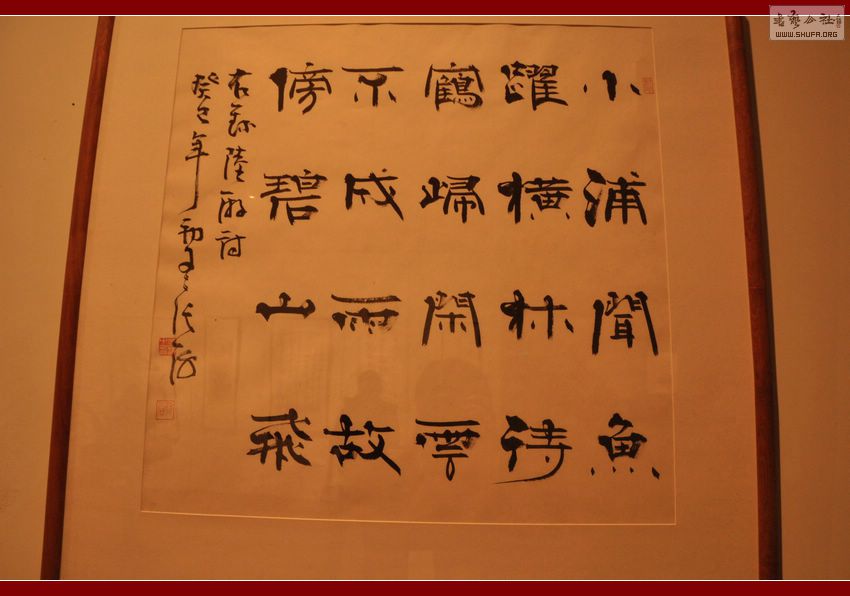 小浦聞魚
躍橫林待
鶴歸閑雲
不成雨故
傍碧山飛
右錄陸
癸巳年
WWW.SHUFA.ORG